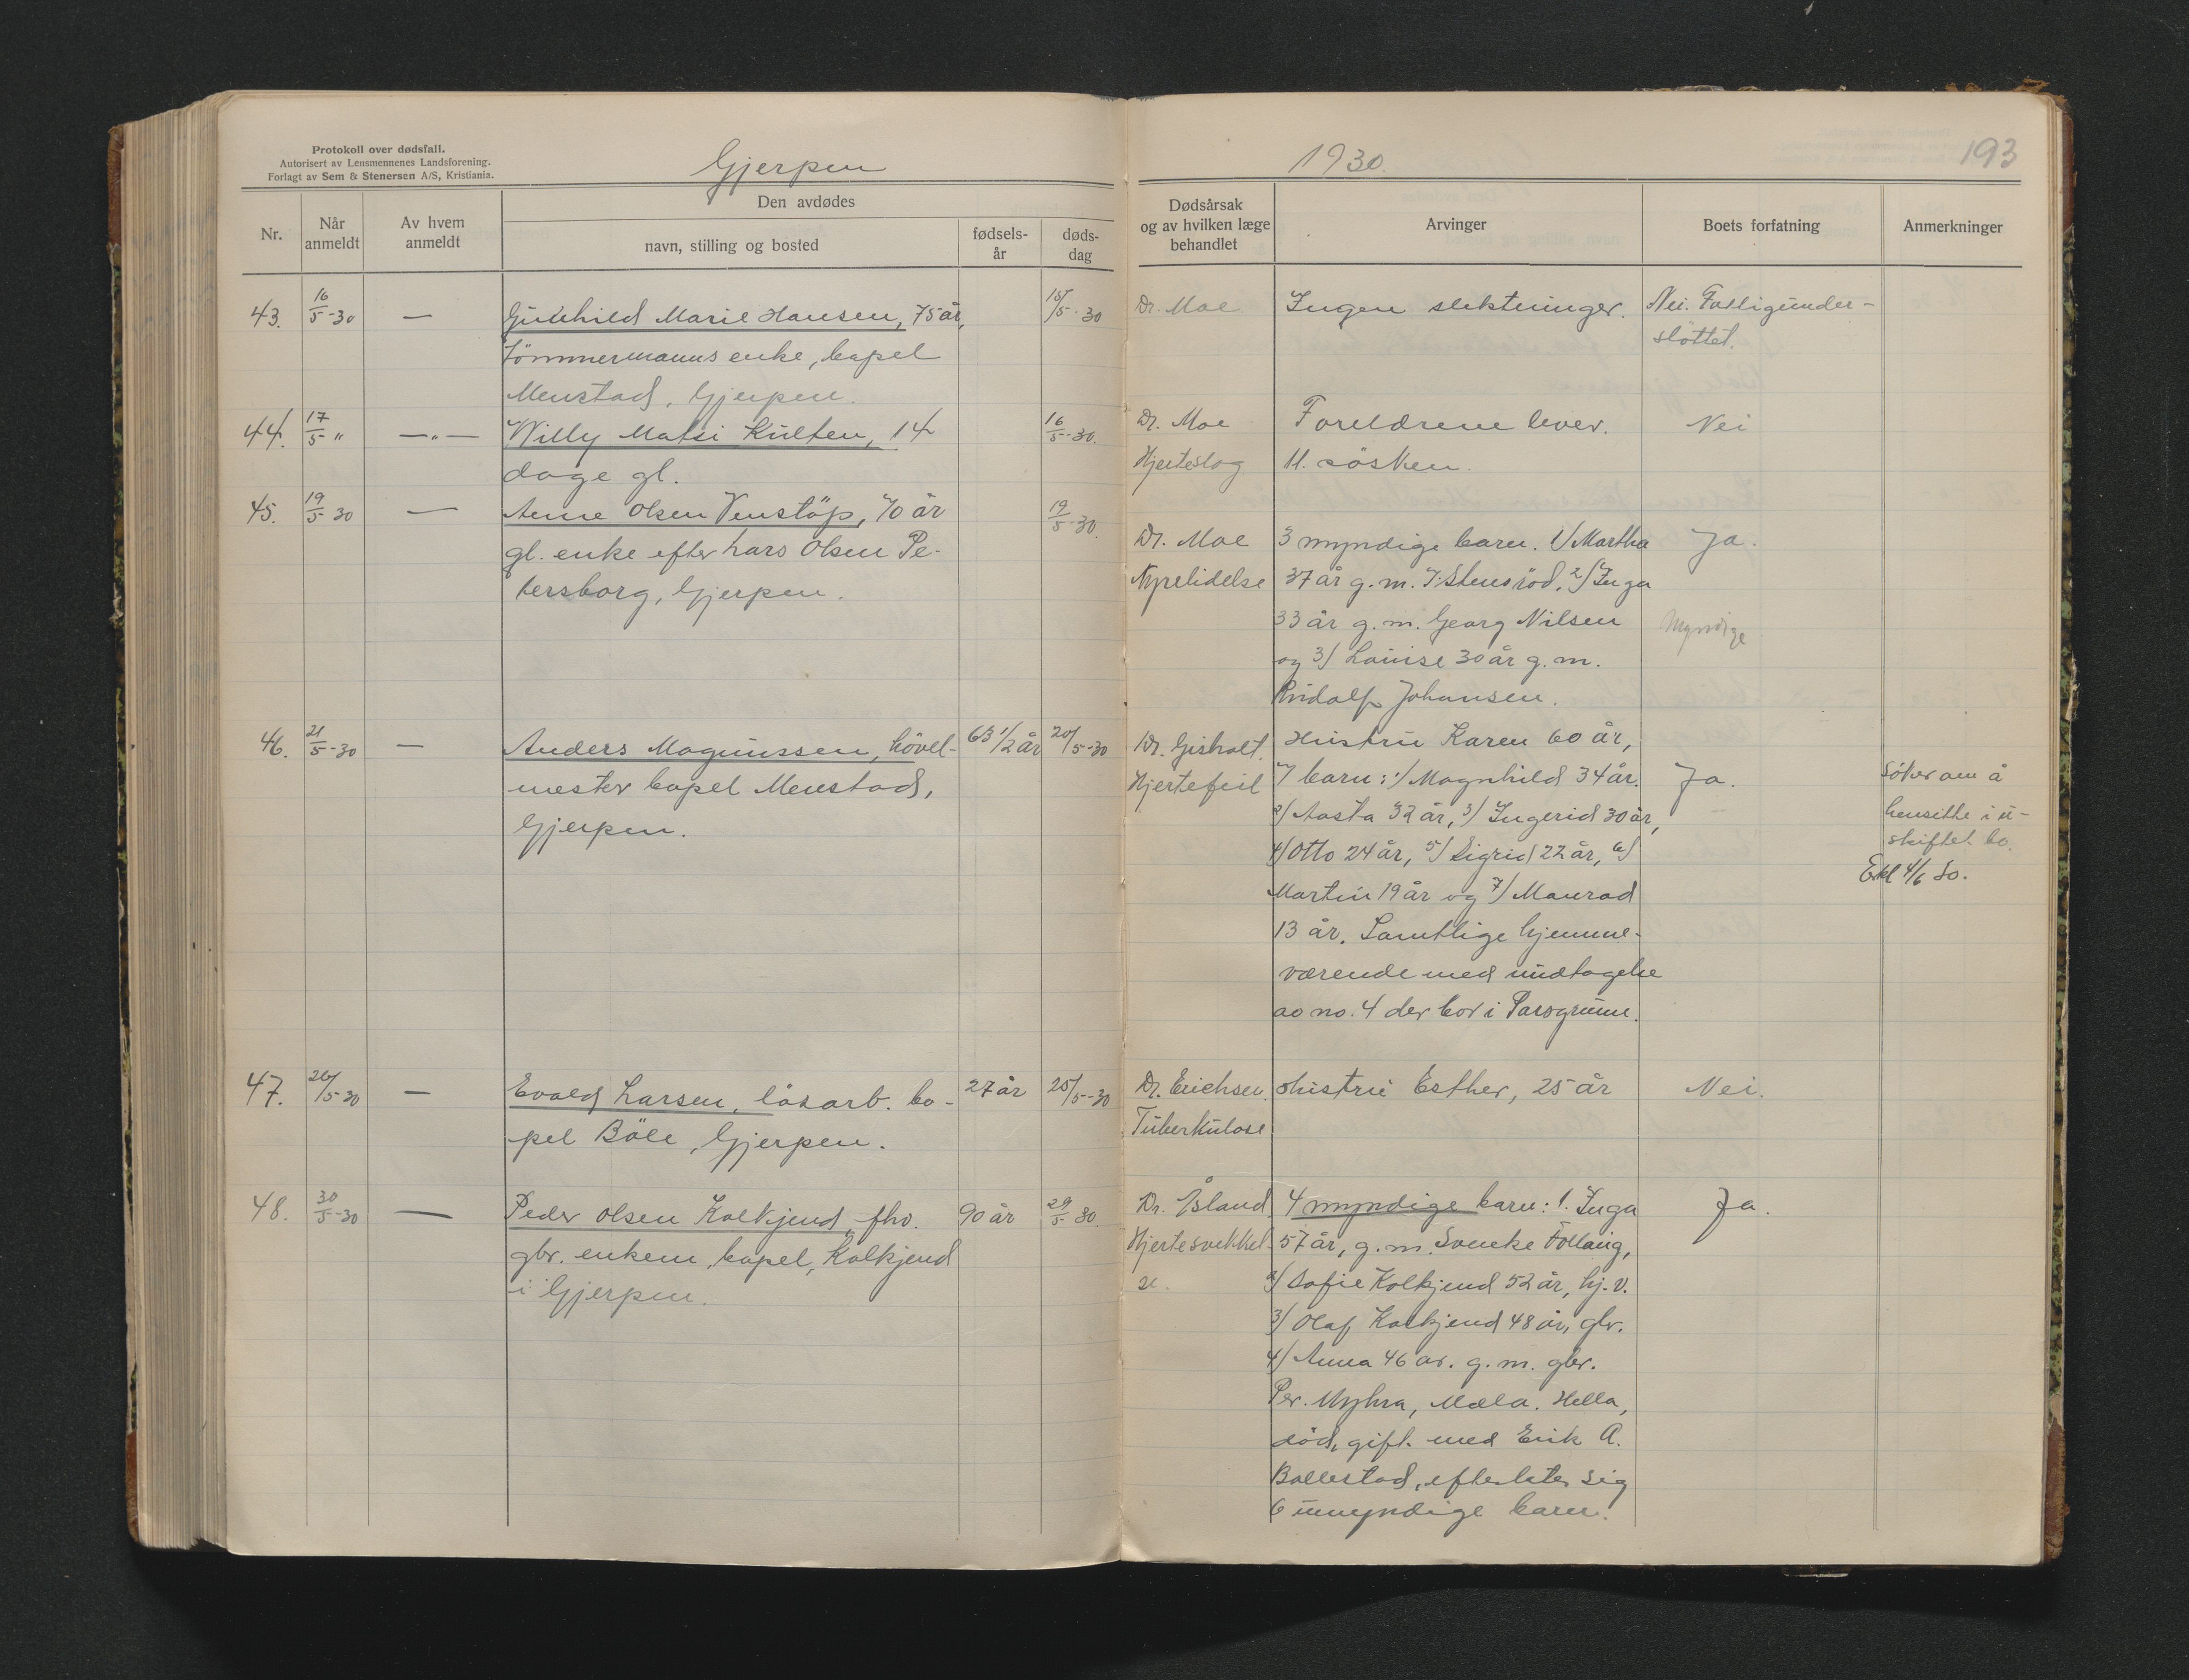 Protokoll over dødsfall.
Autorisert av Lensmennenes Landsforening.
Forlagt av Sem & Stenersen A/S, Kristiania.
Gjerpen
1930.
193
Nr.
Når anmeldt
Av hvem anmeldt
Den avdødes
navn, stilling og bosted
fødsels-
år
døds-
dag
Dødsårsak
og av hvilken læge
behandlet
Arvinger
Boets forfatning
Anmerkninger
43.
16/5-30
—
Gunhild Marie Hansen, 75 år,
tömmermanns enke, bopel
Menstad, Gjerpen.
15/5-30
Dr. Moe
Ingen slektninger.
Nei. Fattigunder-
støttet.
44.
17/5 "
—"—
Willy Matsi Kulten, 14
dage gl.
16/5-30.
Dr. Moe
Hjerteslag
Foreldrene lever.
11. søsken.
Nei
45.
19/5 30
—
Anne Olsen Venstöp, 70 år
gl. enke efter Lars Olsen Pe-
tersborg, Gjerpen.
19/5-30.
Dr. Moe
Nyrelidelse
3 myndige barn. 1/ Martha
37 år g. m. J. Stensröd, 2/ Inga
33 år g. m. Georg Nilsen
og 3/ Louise 30 år g. m.
Rudolf Johansen.
Ja.
Myndige
46.
21/5-30
—
Anders Magnussen, hövel-
mester bopel Menstad,
Gjerpen.
63 1/2 år
20/5-30
Dr. Gisholt.
Hjertefeil
Hustru Karen 60 år,
7 barn: 1/ Magnhild 34 år.
2/ Aasta 32 år, 3/ Ingerid 30 år,
4/ Otto 24 år, 5/ Sigrid 22 år, 6/
Martin 19 år og 7/ Manrad
13 år. Samtlige hjemme-
værende med undtagelse
av no. 4 der bor i Porsgrunn.
Ja.
Söker om å
hensitte i u-
skiftet bo.
Erkl 4/6 30.
47.
26/5-30
—
Evald Larsen, løsarb. bo-
pel Böle, Gjerpen.
27 år
25/5-30
Dr. Erichsen.
Tuberkulose
Hustru Esther, 25 år
Nei.
48.
30/5-30
—
Peder Olsen Kolkjend, fhv.
gbr. enkem, bopel, Kolkjend
i Gjerpen.
90 år
29/5 30.
Dr. Island.
Hjertesvekkel-
se.
4 myndige barn: 1. Inga
57 år, g. m. Svenke Föllaug,
2/ Sofie Kolkjend 52 år, hj. v.
3/ Olaf Kolkjend 48 år, gbr.
4/ Anna 46 år. g. m. gbr.
Per. Myhra, Mæla. Hella,
död, gift med Erik A.
Bollestad, efterlater sig
6 umyndige barn.
Ja.